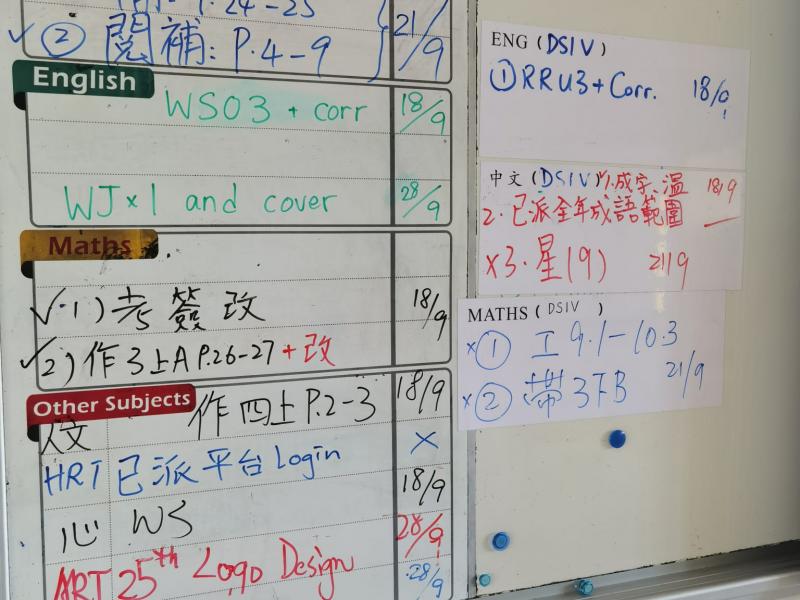 P.24-25
✓ ② 閱補: P.4-9 21/9
English
WS03 + corr 18/9
WJ×1 and cover 28/9
Maths
✓1) 考簽改 18/9
✓2) 作3上A P.26-27 + 改
Other Subjects
作四上P.2-3 18/9
HRT 已派平台Login ×
心 WS 18/9
28/9
ART 25th Logo Design 28/9
ENG (DSIV)
① RRU3+Corr. 18/9
中文 (DSIV) 1.成字、溫 18/9
2.已派全年成語範圍
×3.星(9) 21/9
MATHS (DSIV)
×① 工9.1-10.3
×② 帶3下B 21/9